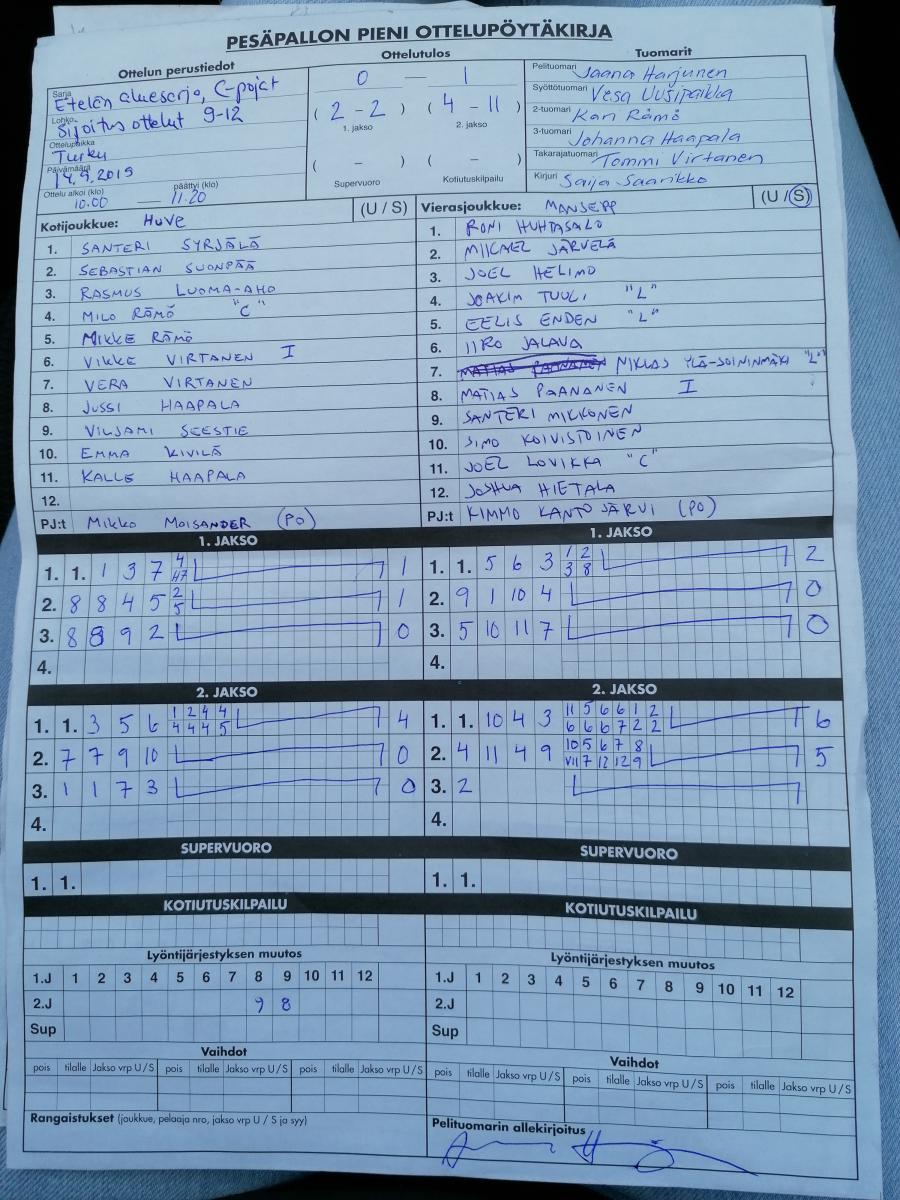 PESÄPALLON PIENI OTTELUPÖYTÄKIRJA
Ottelun perustiedot
Sarja Etelän aluesarja, C-pojat
Lohko Sijoitus ottelut 9-12
Ottelupaikka Turku
Päivämäärä 14.9.2019
Ottelu alkoi (klo) 10.00 — päättyi (klo) 11.20
Ottelutulos
0 — 1
( 2 - 2 ) ( 4 - 11 )
1. jakso 2. jakso
( - ) ( - )
Supervuoro Kotiutuskilpailu
Tuomarit
Pelituomari Jaana Harjunen
Syöttötuomari Vesa Uusipaikka
2-tuomari Kari Rämö
3-tuomari Johanna Haapala
Takarajatuomari Tommi Virtanen
Kirjuri Saija Saarikko
Kotijoukkue: HUVE (U / S)
1. SANTERI SYRJÄLÄ
2. SEBASTIAN SUONPÄÄ
3. RASMUS LUOMA-AHO
4. MILO RÄMÖ "C"
5. MIKKE RÄMÖ
6. VIKKE VIRTANEN I
7. VERA VIRTANEN
8. JUSSI HAAPALA
9. VILJAMI SEESTIE
10. EMMA KIVILÄ
11. KALLE HAAPALA
12.
PJ:t MIKKO MOISANDER (PO)
Vierasjoukkue: MANSEPP (U / S)
1. RONI HUHTASALO
2. MIKAEL JÄRVELÄ
3. JOEL HELIMO
4. JOAKIM TUULI "L"
5. EELIS ENDEN "L"
6. IIRO JALAVA
7. MATIAS PAANANEN NIKLAS YLÄ-SOININMÄKI "L"
8. MATIAS PAANANEN I
9. SANTERI MIKKONEN
10. SIMO KOIVISTOINEN
11. JOEL LOVIKKA "C"
12. JOSHUA HIETALA
PJ:t KIMMO KANTOJÄRVI (PO)
1. JAKSO
1. 1. 1 3 7 4 1
47
2. 8 8 4 5 2 1
5
3. 8 8 9 2 0
4.
1. JAKSO
1. 1. 5 6 3 1 2 2
3 8
2. 9 1 10 4 0
3. 5 10 11 7 0
4.
2. JAKSO
1. 1. 3 5 6 1 2 4 4 4
4 4 4 5
2. 7 7 9 10 0
3. 1 1 7 3 0
4.
2. JAKSO
1. 1. 10 4 3 11 5 6 6 1 2 6
6 6 6 7 2 2
2. 4 11 4 9 10 5 6 7 8 5
VII 7 12 12 9
3. 2
4.
SUPERVUORO
1. 1.
SUPERVUORO
1. 1.
KOTIUTUSKILPAILU
KOTIUTUSKILPAILU
Lyöntijärjestyksen muutos
1.J 1 2 3 4 5 6 7 8 9 10 11 12
2.J 9 8
Sup
Lyöntijärjestyksen muutos
1.J 1 2 3 4 5 6 7 8 9 10 11 12
2.J
Sup
Vaihdot
pois tilalle Jakso vrp U / S pois tilalle Jakso vrp U / S pois tilalle Jakso vrp U / S
Vaihdot
pois tilalle Jakso vrp U / S pois tilalle Jakso vrp U / S pois tilalle Jakso vrp U / S
Rangaistukset (joukkue, pelaaja nro, jakso vrp U / S ja syy)
Pelituomarin allekirjoitus